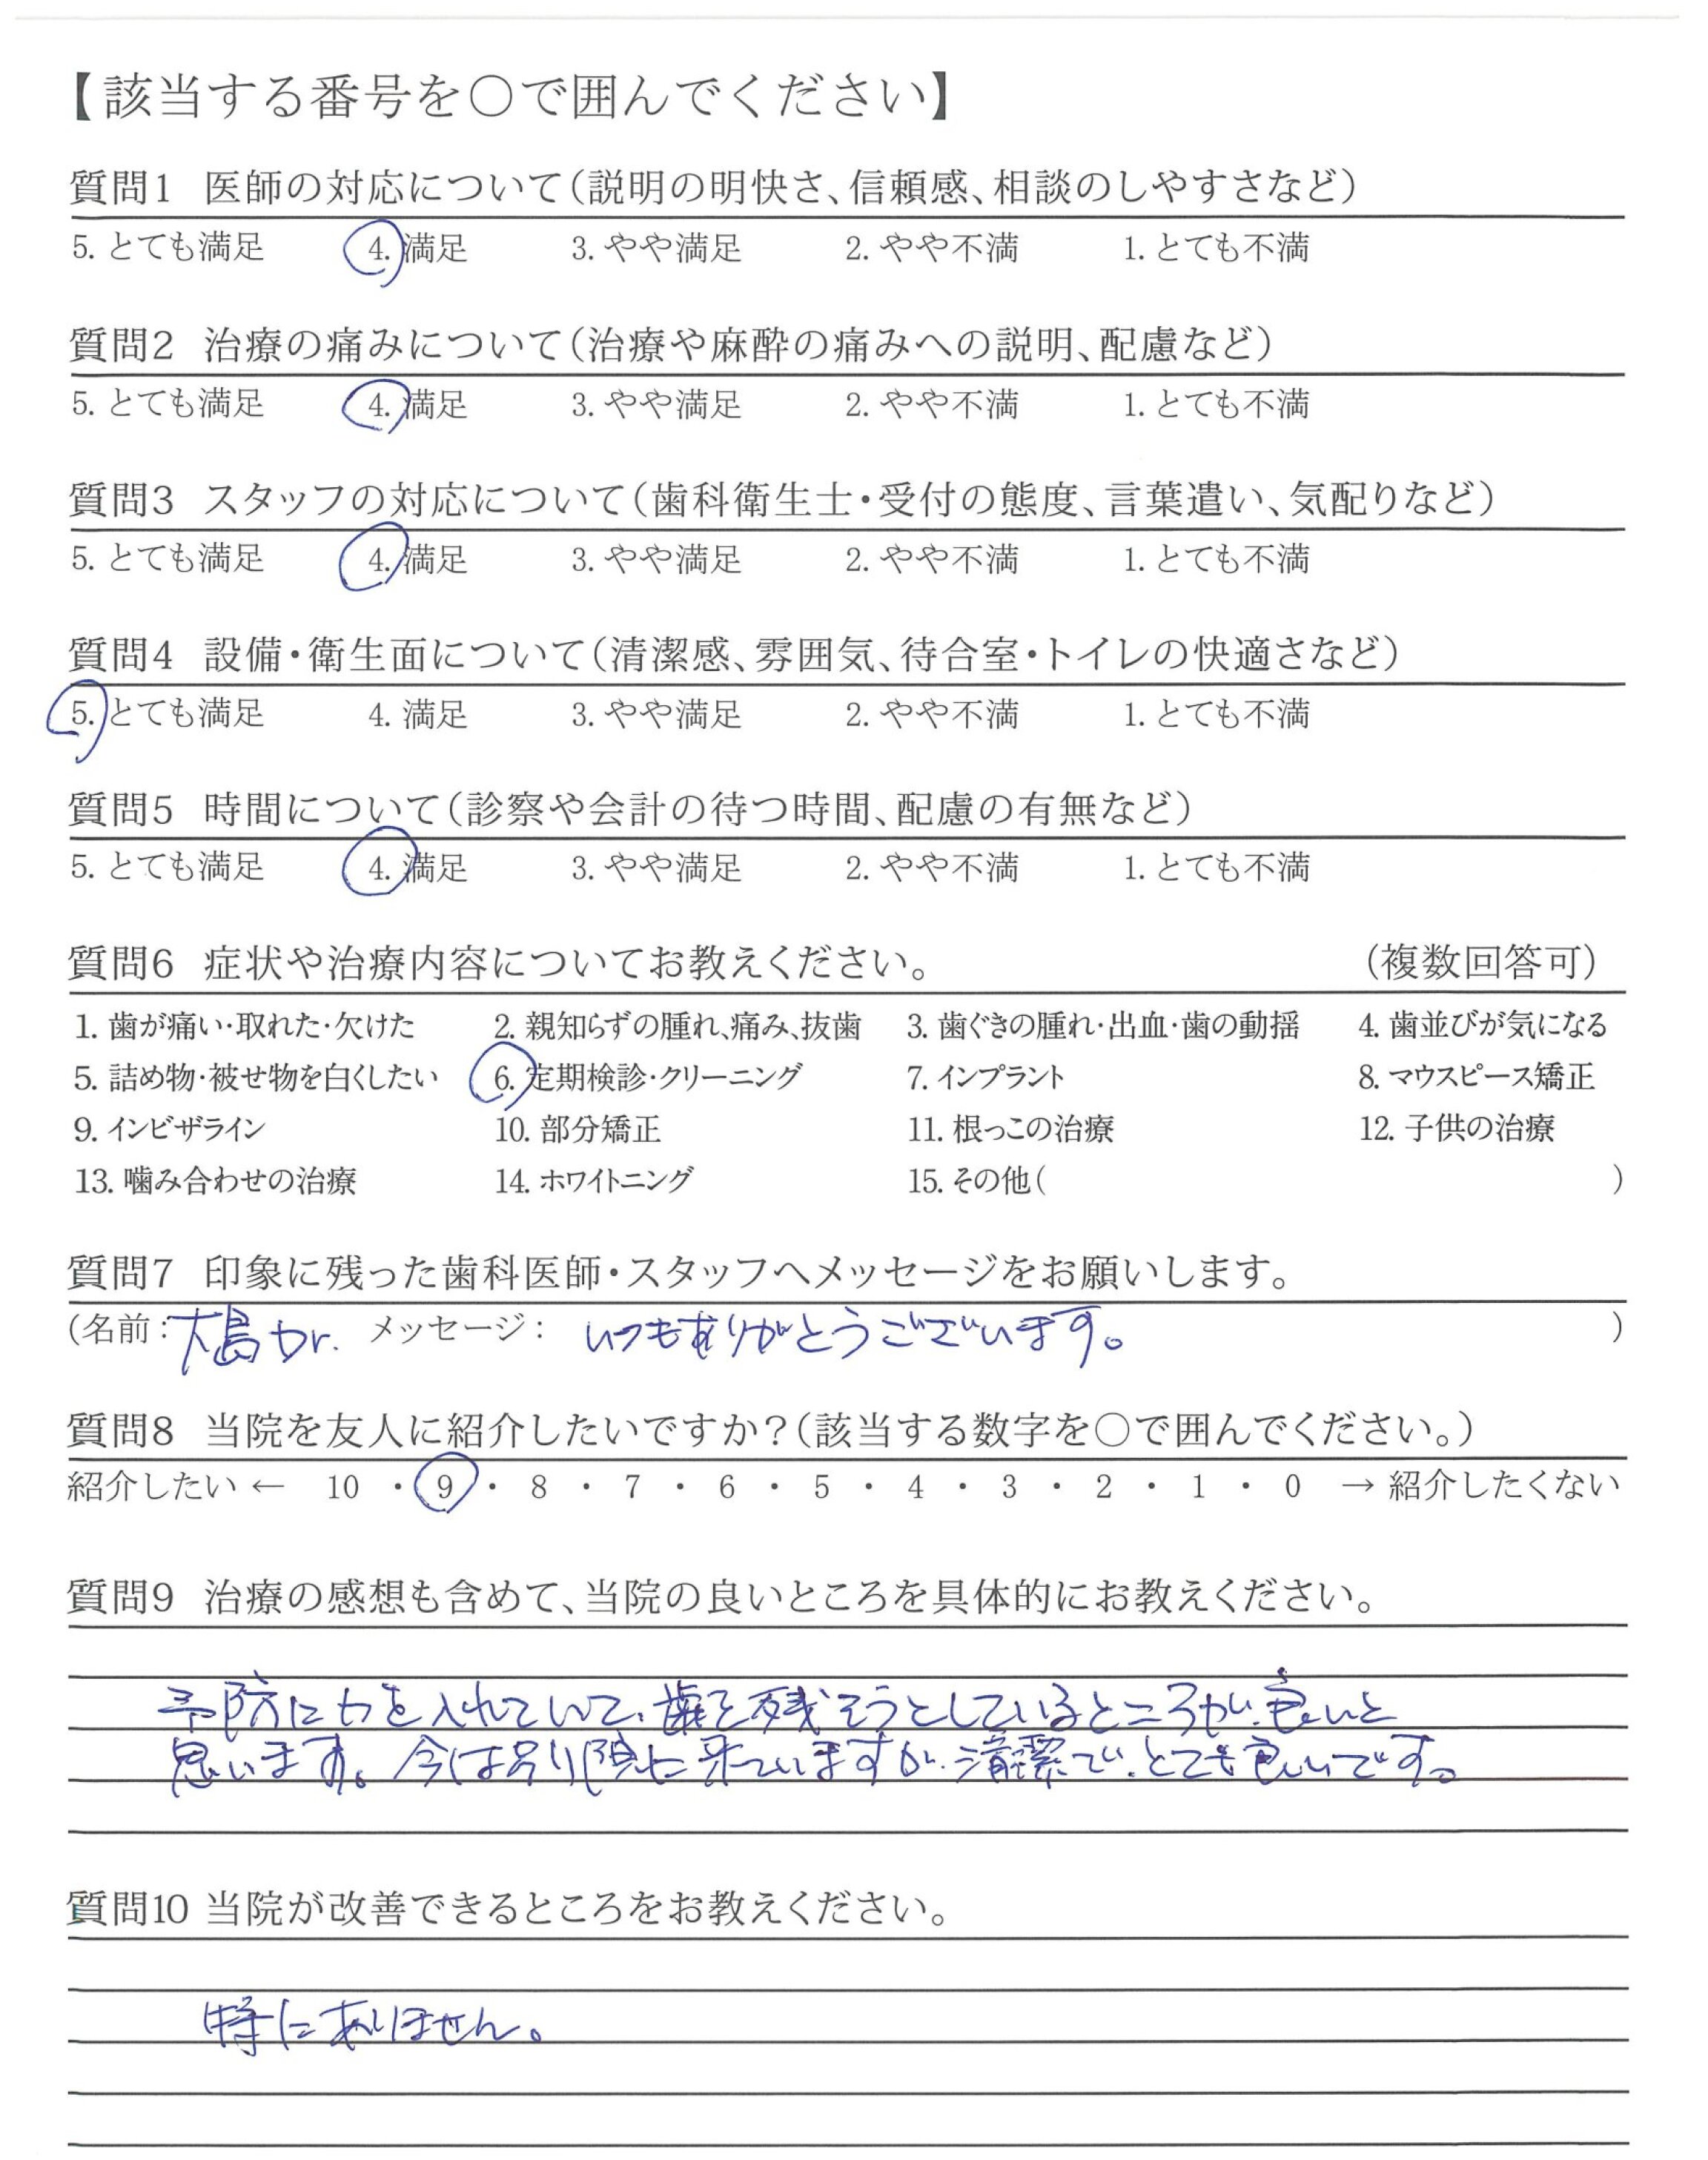 【該当する番号を○で囲んでください】
質問1 医師の対応について(説明の明快さ、信頼感、相談のしやすさなど)
5. とても満足 4. 満足 3. やや満足 2. やや不満 1. とても不満
質問2 治療の痛みについて(治療や麻酔の痛みへの説明、配慮など)
5. とても満足 4. 満足 3. やや満足 2. やや不満 1. とても不満
質問3 スタッフの対応について(歯科衛生士・受付の態度、言葉遣い、気配りなど)
5. とても満足 4. 満足 3. やや満足 2. やや不満 1. とても不満
質問4 設備・衛生面について(清潔感、雰囲気、待合室・トイレの快適さなど)
5. とても満足 4. 満足 3. やや満足 2. やや不満 1. とても不満
質問5 時間について(診察や会計の待つ時間、配慮の有無など)
5. とても満足 4. 満足 3. やや満足 2. やや不満 1. とても不満
質問6 症状や治療内容についてお教えください。 (複数回答可)
1. 歯が痛い・取れた・欠けた 2. 親知らずの腫れ、痛み、抜歯 3. 歯ぐきの腫れ・出血・歯の動揺 4. 歯並びが気になる
5. 詰め物・被せ物を白くしたい 6. 定期検診・クリーニング 7. インプラント 8. マウスピース矯正
9. インビザライン 10. 部分矯正 11. 根っこの治療 12. 子供の治療
13. 噛み合わせの治療 14. ホワイトニング 15. その他( )
質問7 印象に残った歯科医師・スタッフへメッセージをお願いします。
(名前：大島Dr. メッセージ： いつもありがとうございます。 )
質問8 当院を友人に紹介したいですか？(該当する数字を○で囲んでください。)
紹介したい ← 10 ・ 9 ・ 8 ・ 7 ・ 6 ・ 5 ・ 4 ・ 3 ・ 2 ・ 1 ・ 0 → 紹介したくない
質問9 治療の感想も含めて、当院の良いところを具体的にお教えください。
予防に力を入れていて、歯を残そうとしているところが、良いと
思います。今は別院に来ていますが、清潔で、とても良いです。
質問10 当院が改善できるところをお教えください。
特にありません。